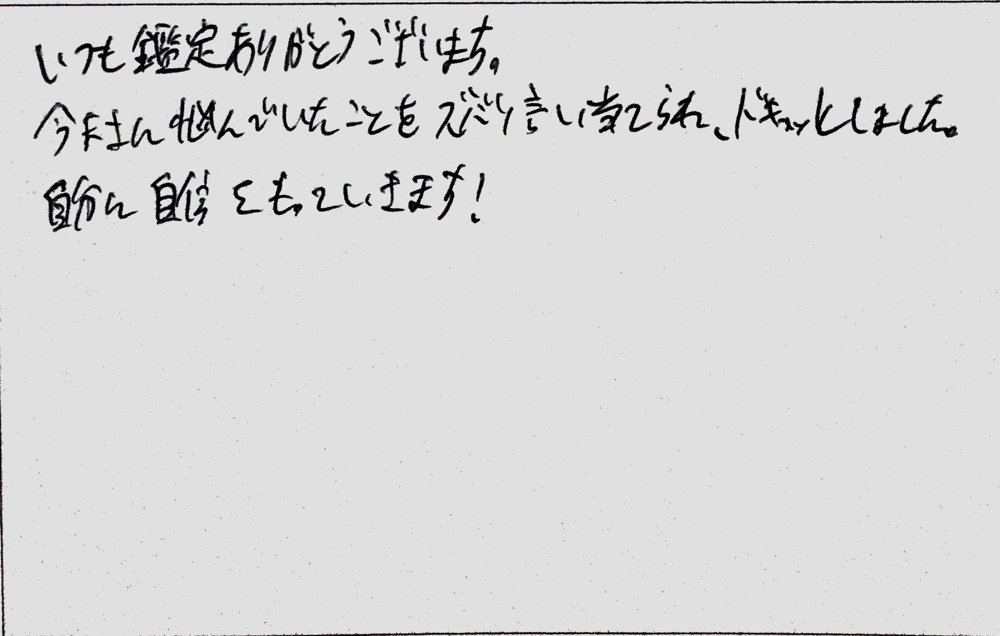 いつも鑑定ありがとうございます。
今まさに悩んでいたことをズバリ言い当てられ、ドキッとしました。
自分に自信をもっていきます！